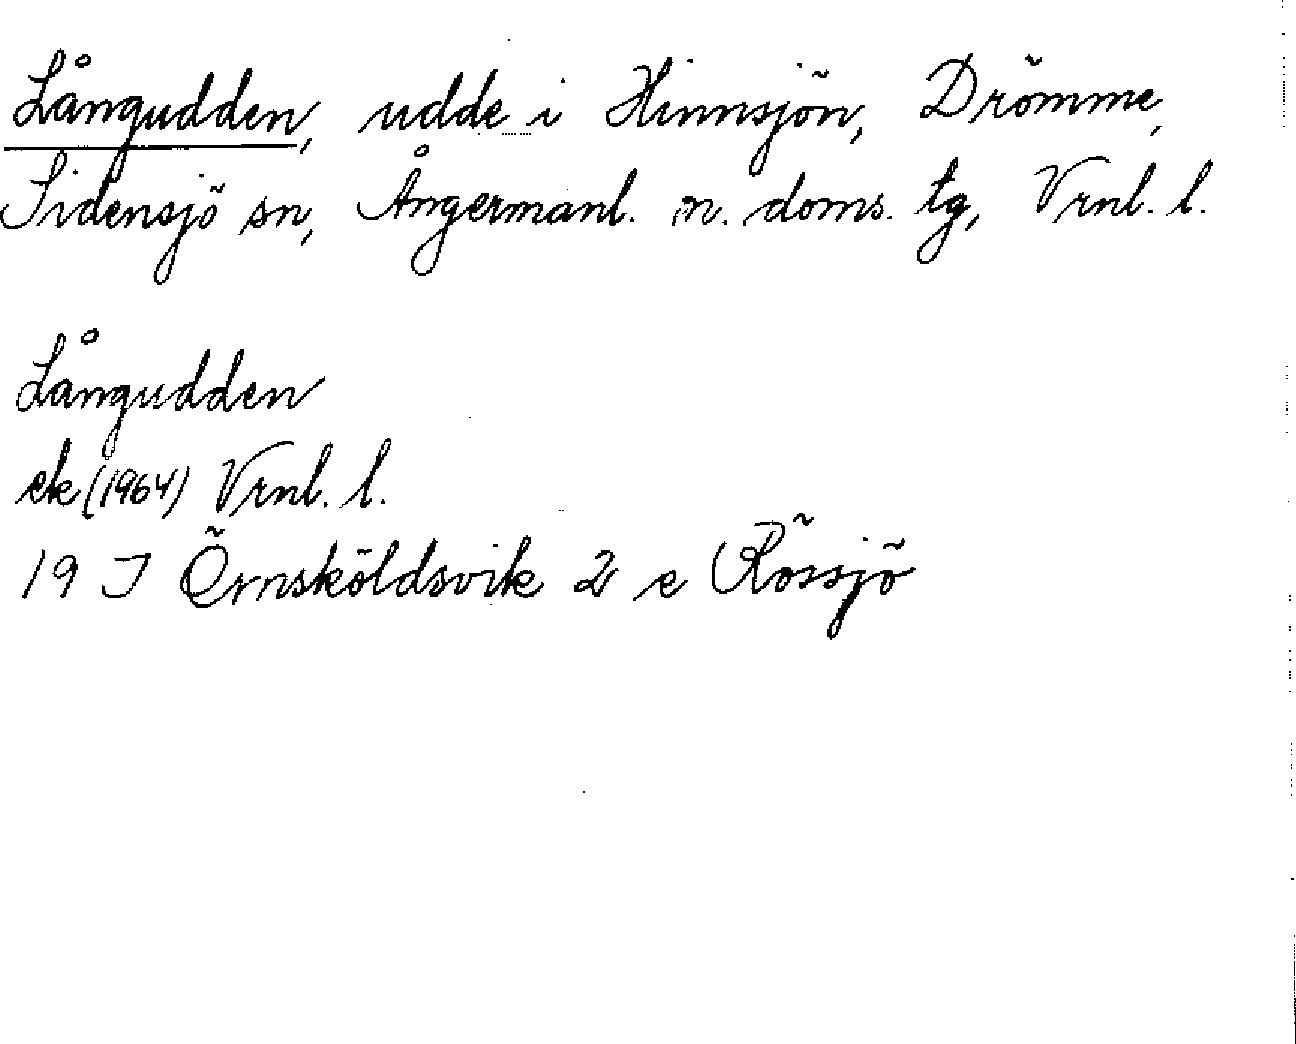 Långudden, udde i Hinnsjön, Drömme,
Sidensjö sn, Ångermanl. n. doms. tg, Vrnl. l.
Långudden
ek (1964) Vrnl. l.
19 I Örnsköldsvik 2 e Rössjö